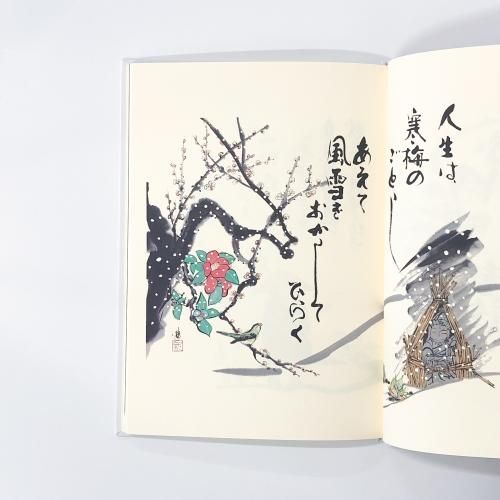 人生は
寒梅の
ごとし
あえて
風雪を
おかして
ひらく